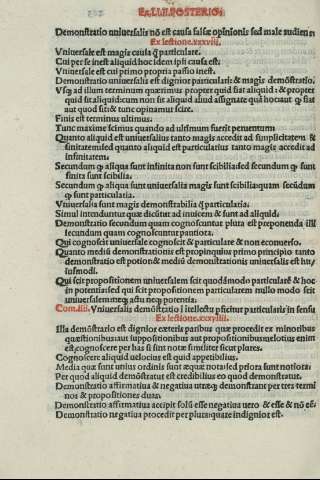 Ex.LI.I.POSTERIO⁊
Demonstratio uniuersalis nõ est causa falsæ opinionis sed male audientis
Ex lectione.xxxviii.
Vniuersale est magis causa q̃ particulare.
Cui per se inest aliquid.hoc idem ipsi causa est.
Vniuersale est cui primo propria passio inest.
Demonstratio uniuersalis est dignior particulari: & magis demõstratio.
Vsq̃ ad illum terminum quærimus propter quid fiat aliquid: & propter
quid sit aliquid:cum non sit aliquid aliud assignare quã hoc:aut ꝙ fiat
aut quod sit: & tunc opinamur scire.
Finis est terminus ultimus.
Tunc maxime scimus quando ad ultimum fuerit peruentum
Quanto aliquid est uniuersalius tanto magis accedit ad simplicitatem &
finitatem:sed quanto aliquid est particularius tanto magis accedit ad
infinitatem.
Secundum ꝙ aliqua sunt infinita non sunt scibilia:sed secundum ꝙ sunt
finita sunt scibilia.
Secundum ꝙ aliqua sunt uniuersalia magis sunt scibilia:quam secũdum
ꝙ sunt particularia.
Vniuersalia sunt magis demonstrabilia q̃ particularia.
Simul intenduntur quæ dicũtur ad inuicem & sunt ad aliquid.
Demonstratio secundum quam cognoscuntur plura est præponenda illi
secundum quam cognoscuntur pautiora.
Qui cognoscit uniuersale cognoscit & particulare & non econuerso.
Quanto mediũ demonstrationis est propinquius primo principio tanto
demonstratio est potion & mediũ demonstrationis uniuersalis est huiusmodi.
Qui scit propositionem uniuersalem scit quodãmodo particularē & hoc
in potentia:sed qui scit propositionem particularem nullo modo scit
uniuersalem:neq; actu neq; potentia.
Com.iiii. Vniuersalis demõstratio ĩ itellectu pficitur particularis in sensu
Ex lectione.xxxviiii.
Illa demõstratio est dignior cæteris paribus quæ procedit ex minoribus
quæstionibus:aut suppositionibus aut propositionibus:uelotius enim
est,cognoscere per has si sint notæ similiter sicut plures.
Cognoscere aliquid uelocius est quid appetibilius.
Media quæ sunt unius ordinis sunt æquæ nota:sed priora sunt notiora.
Per quod aliquid demõstratur est credibilius eo quod demonstratur.
Demonstratio affirmatiua & negatiua utraq; demonstrant per tres terminos
& propositiones duas.
Demonstratio affirmatiua accipit solũ esse negatiua uero & esse & nõ eē.
Demonstratio negatiua procedit per plura:quare indignior est.